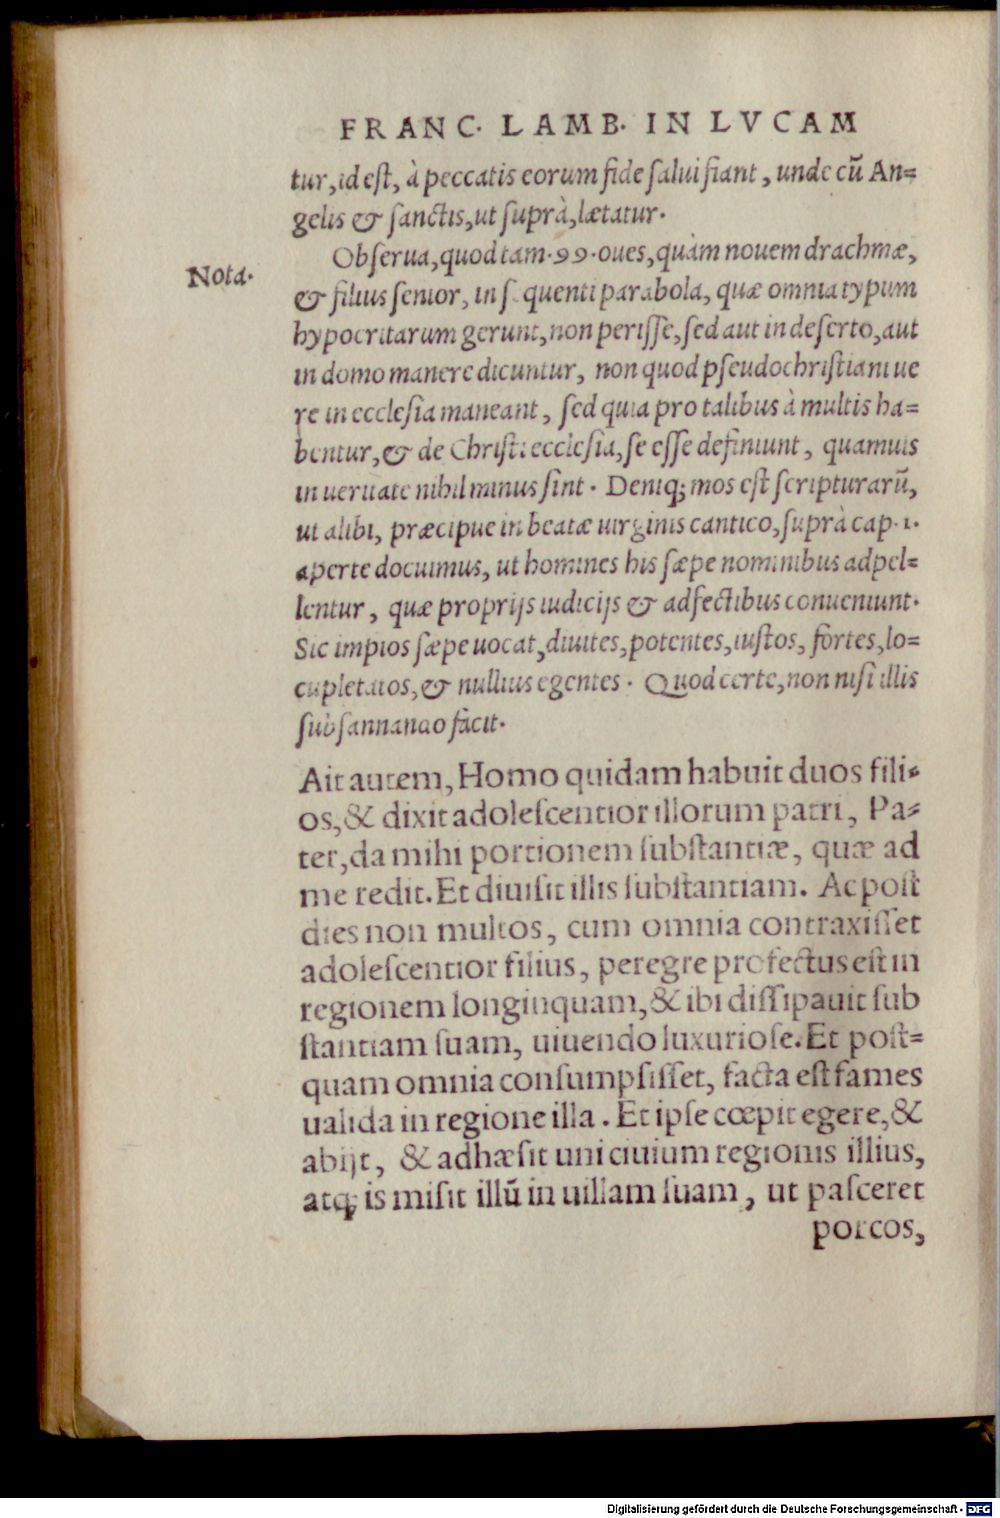 FRANC. LAMB. IN LVCAM
tur, id est, à peccatis eorum fide salui fiant, unde cū An=
gelis & sanctis, ut suprà, lætatur.
Obserua, quod tam .99. oues, quàm nouem drachmæ,
Nota.
& filius senior, in s quenti parabola, quæ omnia typum
hypocritarum gerunt, non perisse, sed aut in deserto, aut
in domo manere dicuntur, non quod pseudochristiani ue
re in ecclesia maneant, sed quia pro talibus à multis ha=
bentur, & de Christi ecclesia, se esse definiunt, quamuis
in ueritate nihil minus sint. Deniq; mos est scripturarū,
ut alibi, præcipue in beatæ uirginis cantico, suprà cap. 1.
aperte docuimus, ut homines his sæpe nominibus adpel=
lentur, quæ proprijs iudicijs & adfectibus conueniunt.
Sic impios sæpe uocat, diuites, potentes, iustos, fortes, lo=
cupletatos, & nullius egentes. Quod certe, non nisi illis
subsannando facit.
Ait autem, Homo quidam habuit duos fili=
os, & dixit adolescentior illorum patri, Pa=
ter, da mihi portionem substantiæ, quæ ad
me redit. Et diuisit illis substantiam. Ac post
dies non multos, cum omnia contraxisset
adolescentior filius, peregre profectus est in
regionem longinquam, & ibi dissipauit sub
stantiam suam, uiuendo luxuriose. Et post=
quam omnia consumpsisset, facta est fames
ualida in regione illa. Et ipse cœpit egere, &
abijt, & adhæsit uni ciuium regionis illius,
atq; is misit illū in uillam suam, ut pasceret
porcos,
Digitalisierung gefördert durch die Deutsche Forschungsgemeinschaft - DFG